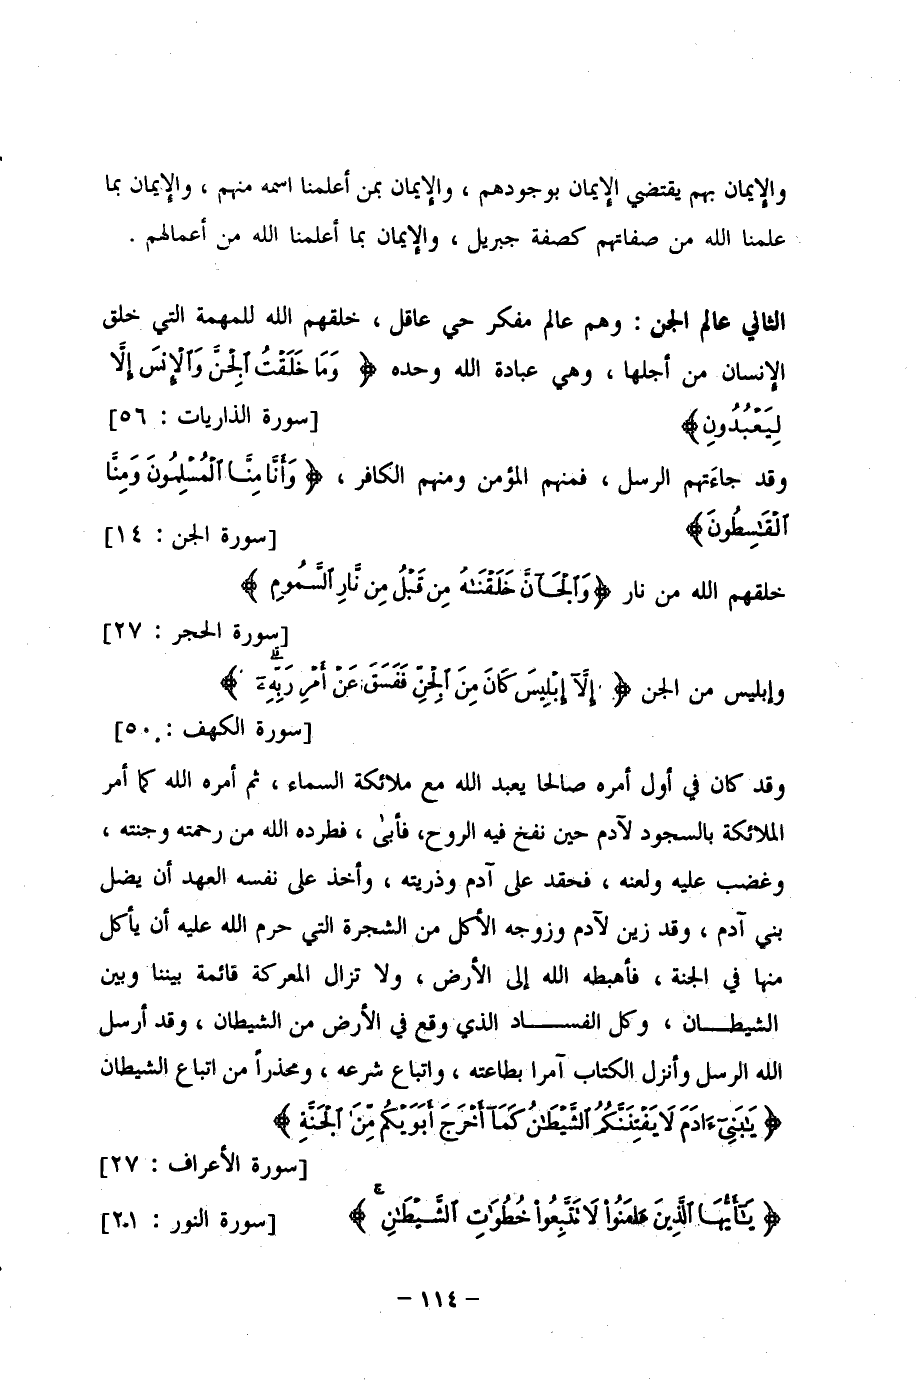 والإيمان بهم يقتضي الإيمان بوجودهم ، والإيمان بمن أعلمنا اسمه منهم ، والإيمان بما
علمنا الله من صفاتهم كصفة جبريل ، والإيمان بما أعلمنا الله من أعمالهم .
الثاني عالم الجن : وهم عالم مفكر حي عاقل ، خلقهم الله للمهمة التي خلق
الإنسان من أجلها ، وهي عبادة الله وحده ﴿ وَمَا خَلَقْتُ ٱلْجِنَّ وَٱلْإِنسَ إِلَّا
لِيَعْبُدُونِ ﴾ [سورة الذاريات : ٥٦]
وقد جاءَتهم الرسل ، فمنهم المؤمن ومنهم الكافر ، ﴿ وَأَنَّا مِنَّا ٱلْمُسْلِمُونَ وَمِنَّا
ٱلْقَٰسِطُونَ ﴾ [سورة الجن : ١٤]
خلقهم الله من نار ﴿ وَٱلْجَآنَّ خَلَقْنَٰهُ مِن قَبْلُ مِن نَّارِ ٱلسَّمُومِ ﴾
[سورة الحجر : ٢٧]
وإبليس من الجن ﴿ إِلَّآ إِبْلِيسَ كَانَ مِنَ ٱلْجِنِّ فَفَسَقَ عَنْ أَمْرِ رَبِّهِۦٓ ۗ ﴾
[سورة الكهف : ٥٠]
وقد كان في أول أمره صالحا يعبد الله مع ملائكة السماء ، ثم أمره الله كما أمر
الملائكة بالسجود لآدم حين نفخ فيه الروح، فأبىٰ ، فطرده الله من رحمته وجنته ،
وغضب عليه ولعنه ، فحقد على آدم وذريته ، وأخذ على نفسه العهد أن يضل
بني آدم ، وقد زين لآدم وزوجه الأكل من الشجرة التي حرم الله عليه أن يأكل
منها في الجنة ، فأهبطه الله إلى الأرض ، ولا تزال المعركة قائمة بيننا وبين
الشيطـــان ، وكل الفســـاد الذي وقع في الأرض من الشيطان ، وقد أرسل
الله الرسل وأنزل الكتاب آمرا بطاعته ، واتباع شرعه ، ومحذراً من اتباع الشيطان
﴿ يَٰبَنِىٓ ءَادَمَ لَا يَفْتِنَنَّكُمُ ٱلشَّيْطَٰنُ كَمَآ أَخْرَجَ أَبَوَيْكُم مِّنَ ٱلْجَنَّةِ ﴾
[سورة الأعراف : ٢٧]
﴿ يَٰٓأَيُّهَا ٱلَّذِينَ ءَامَنُوا۟ لَا تَتَّبِعُوا۟ خُطُوَٰتِ ٱلشَّيْطَٰنِ ۚ ﴾ [سورة النور : ٢٠١]
– ١١٤ –